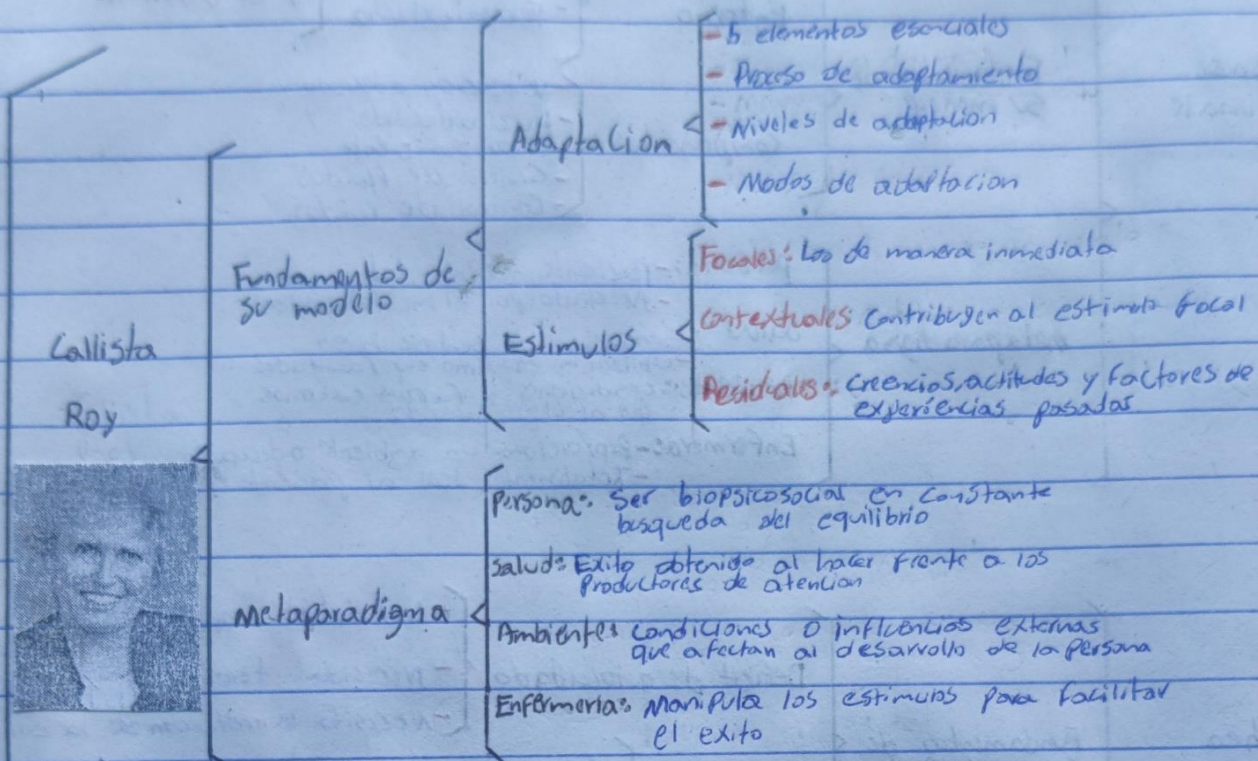 Callista
Roy
Fundamentos de
su modelo
Adaptacion
- 5 elementos esenciales
- Proceso de adaptamiento
- Niveles de adaptacion
- Modos de adaptacion
Estimulos
Focales: Los de manera inmediata
Contextuales: Contribuyen al estimulo focal
Residuales: Creencias, actitudes y factores de
experiencias pasadas
Metaparadigma
Persona: Ser biopsicosocial en constante
busqueda del equilibrio
Salud: Exito obtenido al hacer frente a los
Productores de atencion
Ambiente: condiciones o influencias externas
que afectan al desarrollo de la persona
Enfermeria: Manipula los estimulos para facilitar
el exito